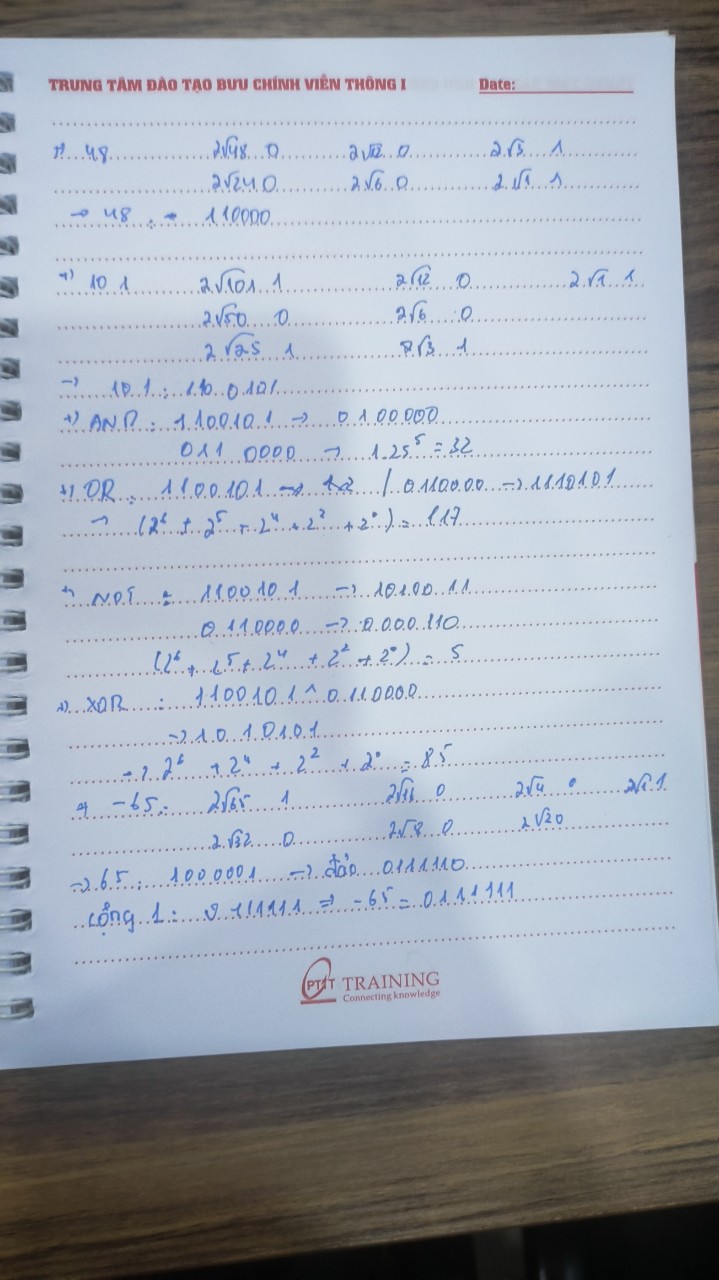 TRUNG TÂM ĐÀO TẠO BƯU CHÍNH VIỄN THÔNG I Date:
+) 48 2√48 0 2√12 0 2√3 1
2√24 0 2√6 0 2√1 1
→ 48 : 110000
+) 101 2√101 1 2√12 0 2√1 1
2√50 0 2√6 0
2√25 1 2√3 1
→ 101 : 1100101
+) AND : 1100101 → 0100000
0110000 → 1.2^5 = 32
+) OR : 1100101 → / 0110000 → 1110101
→ (2^6 + 2^5 + 2^4 + 2^2 + 2^0) = 117
+) NOT : 1100101 → 1010011
0110000 → 0000110
(2^6 + 2^5 + 2^4 + 2^2 + 2^0) = 5
+) XOR : 1100101 ^ 0110000
→ 1010101
→ 2^6 + 2^4 + 2^2 + 2^0 = 85
+) -65 : 2√65 1 2√16 0 2√4 0 2√1 1
2√32 0 2√8 0 2√2 0
→ 65 : 1000001 → đảo 0111110
Cộng 1 : 0111111 ⇒ -65 = 0111111
PTIT TRAINING
Connecting knowledge